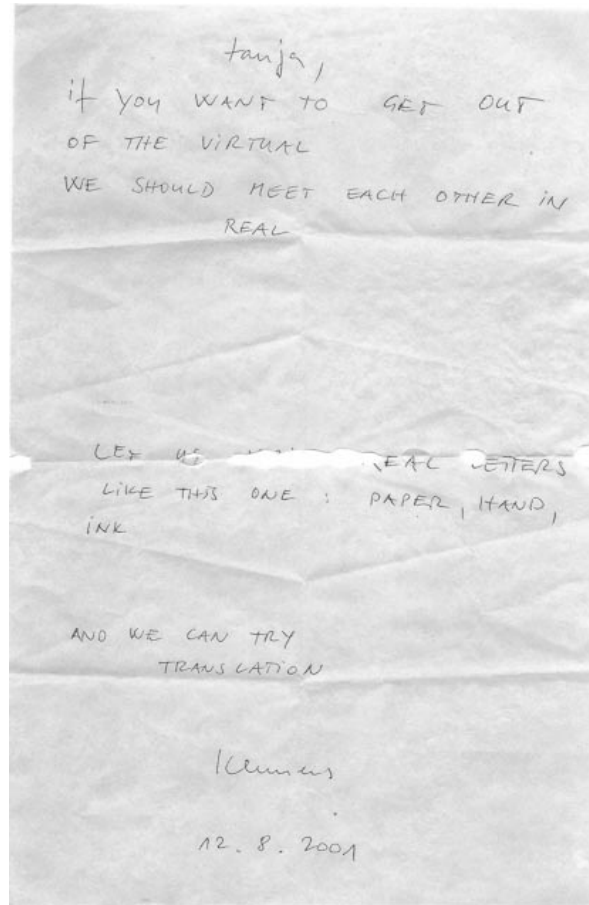 tanja,
if YOU WANT TO GET OUT
OF THE ViRTUAL
WE SHOULD MEET EACH OTHER iN
REAL
LET US REAL LETTERS
LiKE THiS ONE : PAPER, HAND,
iNK
AND WE CAN TRY
TRANSLATiON
Klemens
12.8.2001